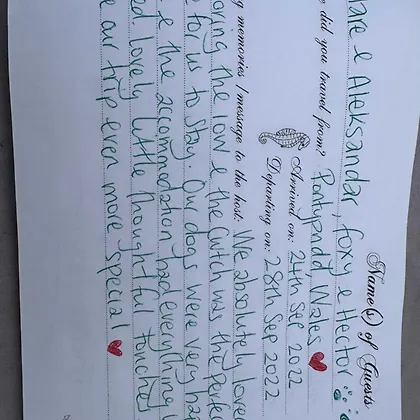 Name(s) of Guests
lare & Aleksandar, foxy & Hector
e did you travel from? Pontypridd Wales
Arrived on: 24th Sep 2022
Departing on: 28th Sep 2022
g memories / message to the host: We absolutely love
oring the low & the Cutch was the perfe
e for us to stay. Our dogs were very ha
& the accommodation had everything u
ed lovely little thoughtful touches
e our trip even more special